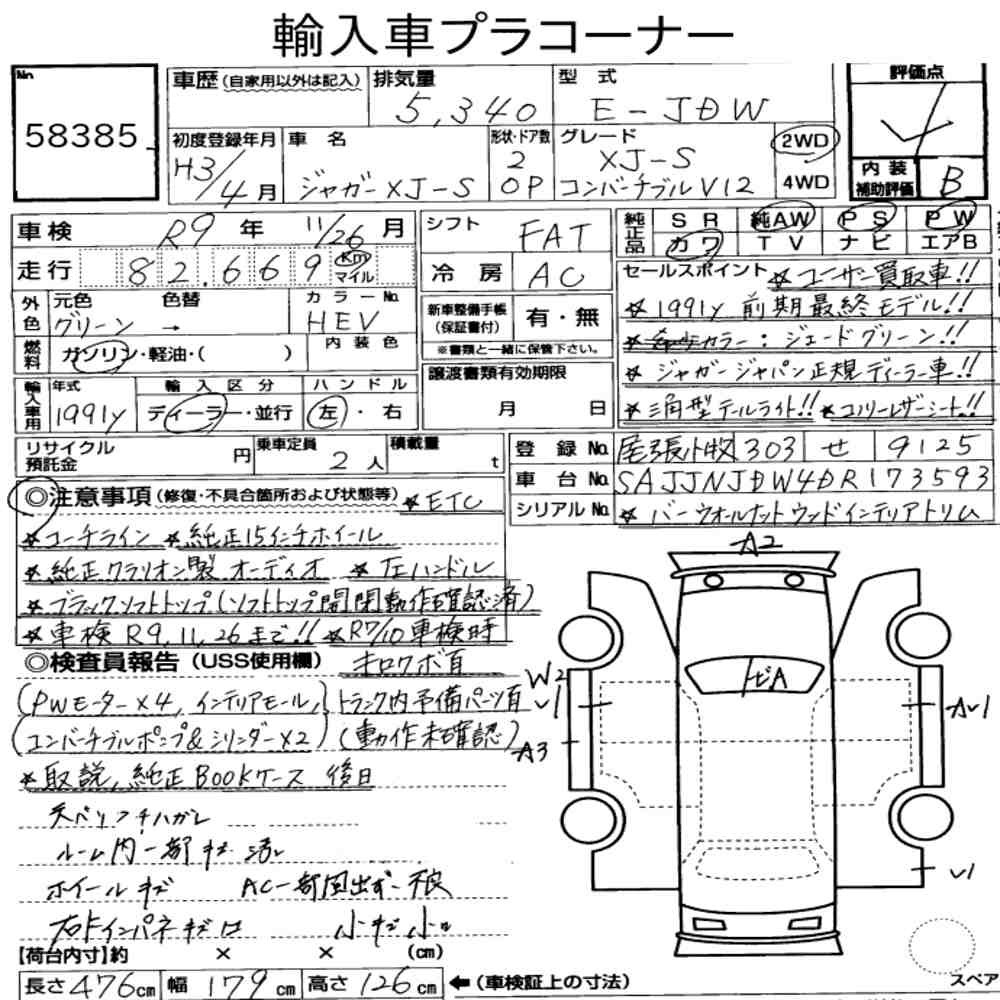 輸入車プラコーナー
No 58385
車歴 (自家用以外は記入)
排気量 5,340
型式 E-JDW
評価点
初度登録年月 H3/4月
車名 ジャガーXJ-S
形状・ドア数 2 OP
グレード XJ-S コンバーチブルV12
2WD
4WD
内装補助評価 B
車検 R9年 11/26月
走行 82,669 Km マイル
シフト FAT
冷房 AC
純正品 SR 純AW PS PW
カワ TV ナビ エアB
外色 元色 グリーン → 色替
カラーNo. HEV
燃料 ガソリン・軽油・( )
内装色
新車整備手帳(保証書付) 有・無
※書類と一緒に保管下さい。
セールスポイント ★ユーザー買取車!!
★1991y 前期最終モデル!!
カラー:ジェードグリーン!!
★ジャガージャパン正規ディーラー車!!
★三角型テールライト!! ★コノリーレザーシート!!
輸入車用 年式 1991y
輸入区分 ディーラー・並行
ハンドル 左・右
譲渡書類有効期限 月 日
リサイクル預託金 円
乗車定員 2人
積載量 t
登録No. 尾張小牧 303 せ 9125
車台No. SAJJNJDW4DR173593
シリアルNo. ★バーウォールナットウッドインテリアトリム
◎注意事項 (修復・不具合箇所および状態等) ★ETC
★コーチライン ★純正15インチホイール
★純正クラリオン製オーディオ ★左ハンドル
★ブラックソフトトップ(ソフトトップ開閉動作確認済)
★車検R9,11,26まで!! ★R7/10車検時
◎検査員報告 (USS使用欄) キロワボ有
(PWモーター×4, インテリアモール, トランク内予備パーツ有
コンバーチブルポンプ&シリンダー×2) (動作未確認)
★取説, 純正BOOKケース 後日
天ベリ ハガレ
ルーム内一部キズ 汚レ
ホイールキズ AC一部風出ず 不良
右ドインパネキズ 小キズ 小凹
【荷台内寸】約 × × (cm)
長さ476cm 幅179cm 高さ126cm ←(車検証上の寸法)
A2
トビA
W2
U1
A3
AU1
U1
スペア